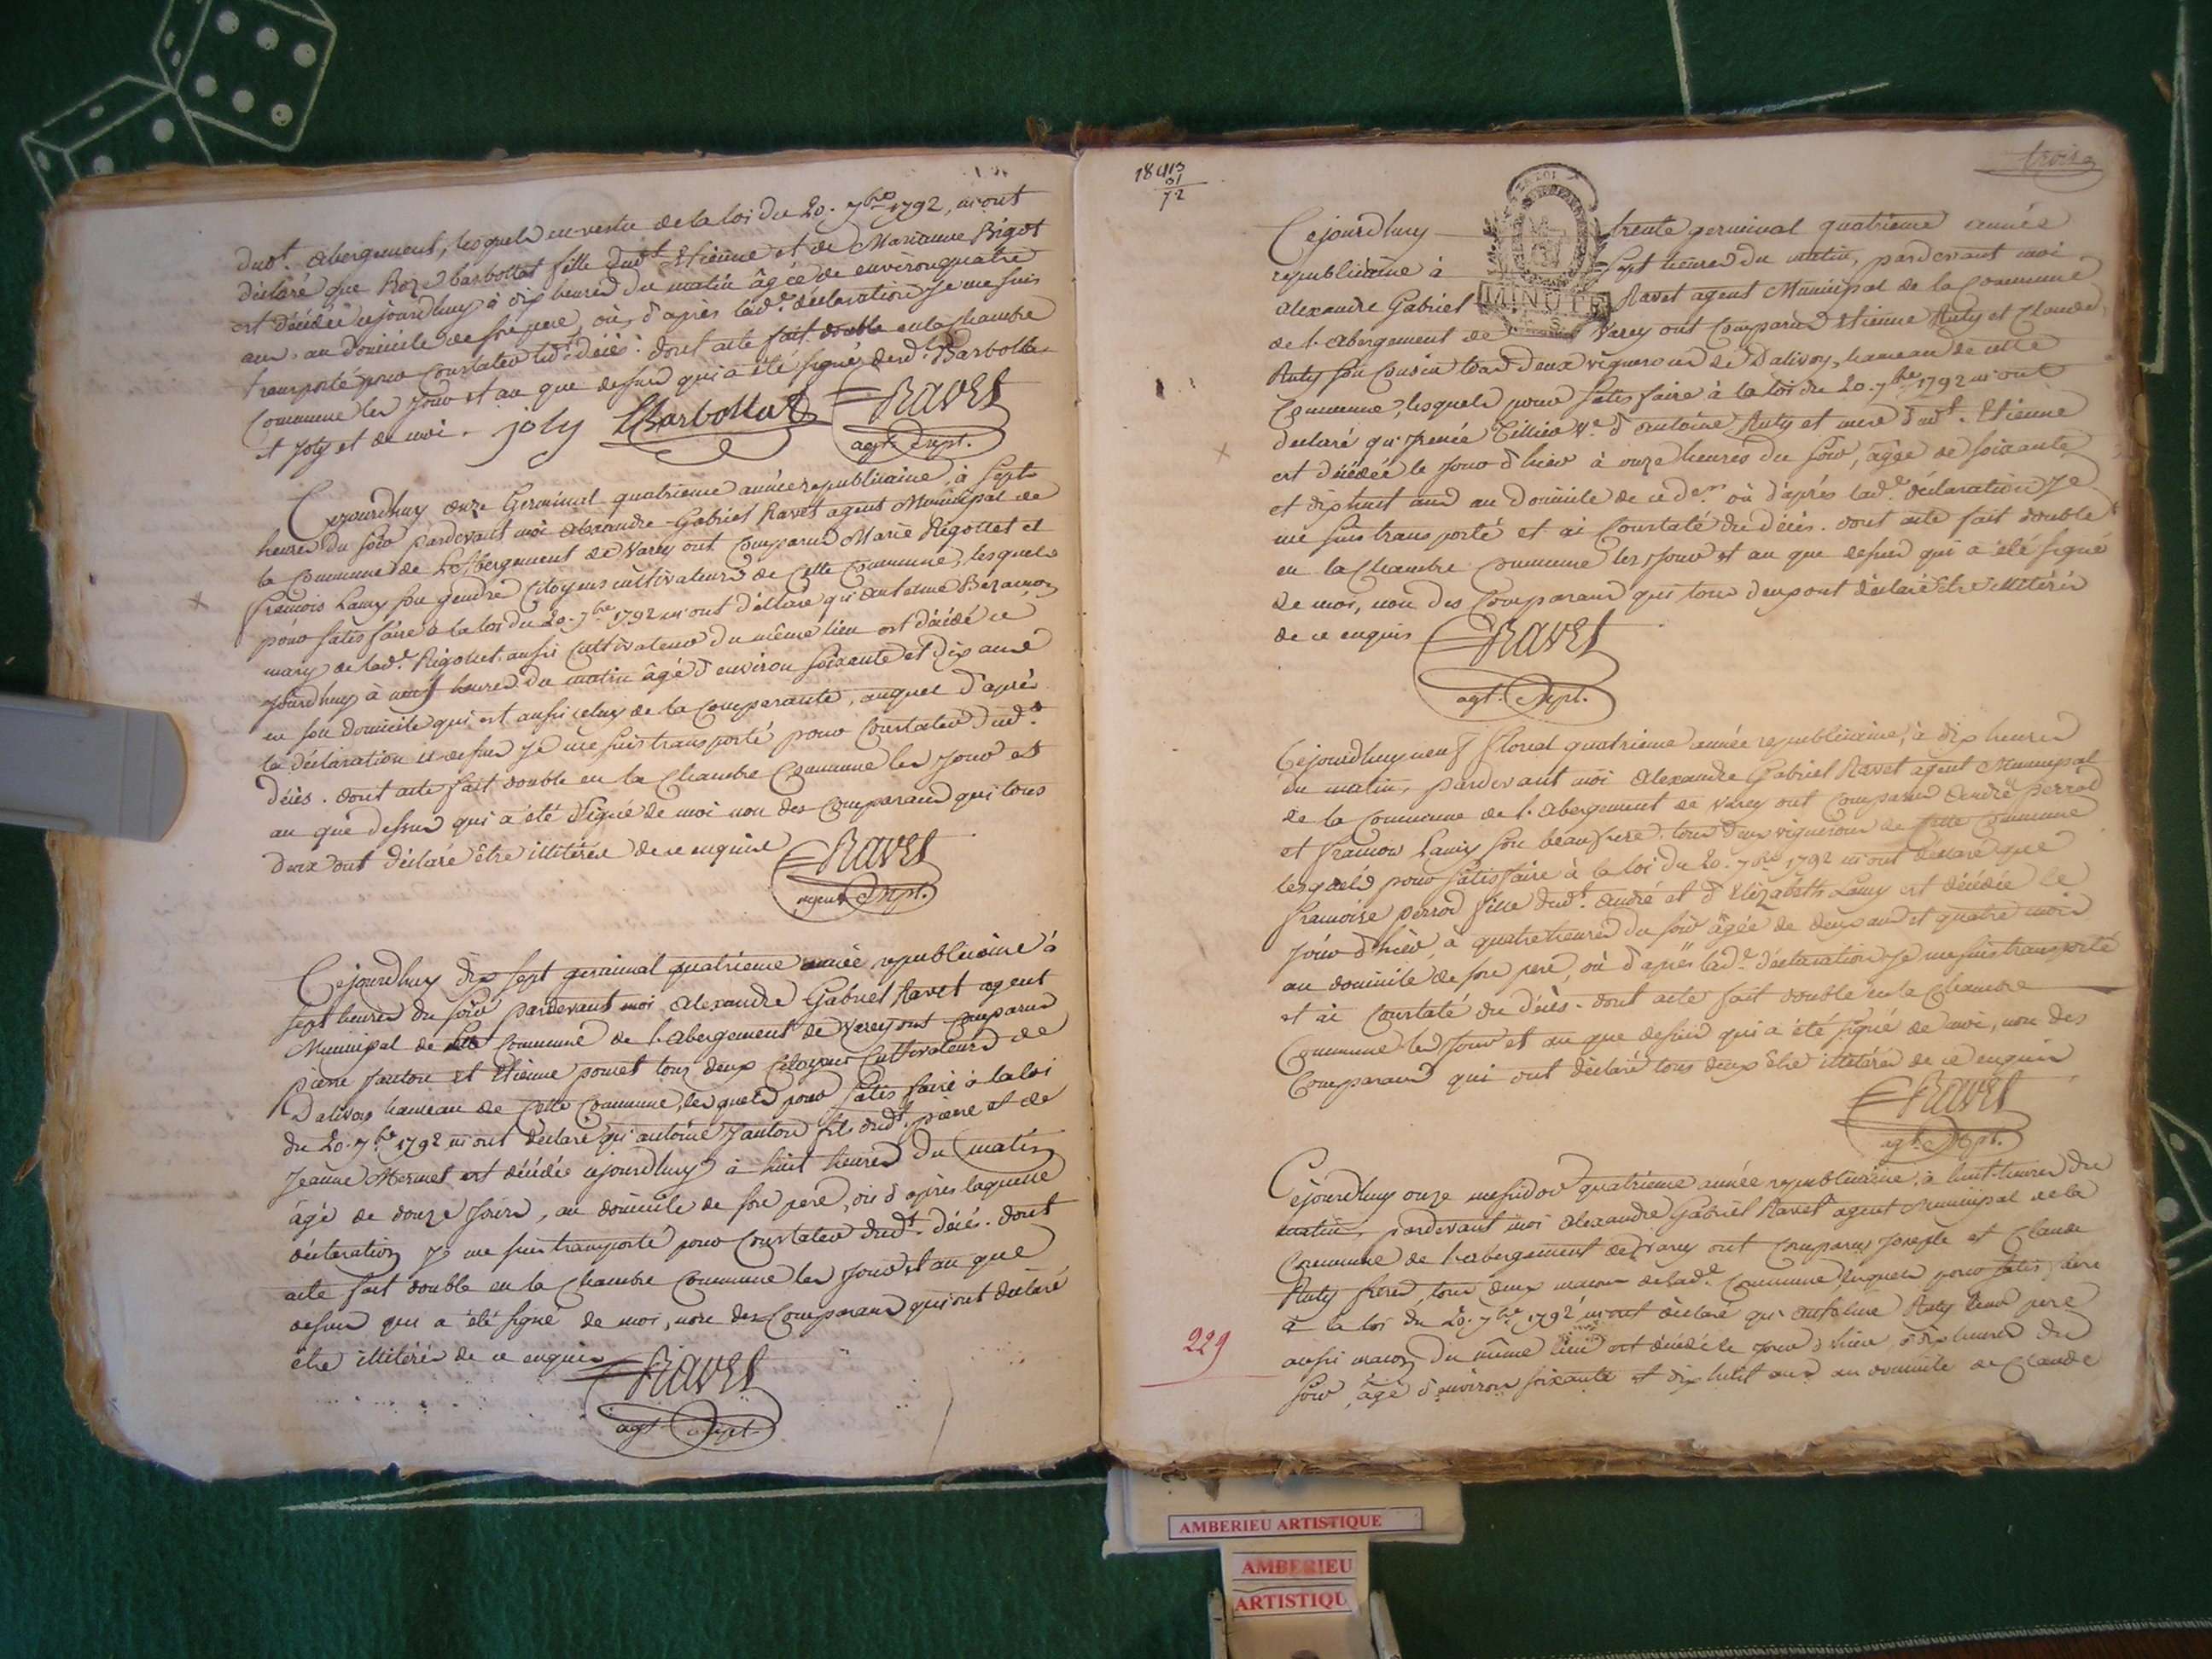 dudt. abergement, lesquels en vertu de la loi du 20. 7bre 1792, m'ont
déclaré que Roze barbollat fille dudt Etienne et de Marianne Bigot
est décédée cejourdhuy à dix heures du matin âgée de environ quatre
ans au domicile de son pere, où d'après lade. déclaration je me suis
transporté pour constater led. décès. dont acte fait double en la chambre
Commune les jour et an que dessus qui a été signés desd. Barbollat
et Joly et de moi. joly Barbollat RAVET
agt. mpl.
Cejourdhuy onze Germinal quatrieme année republicaine, à sept
heures du soir pardevant moi Alexandre-Gabriel Ravet agent Municipal de
la Commune de L'Abergement de Varey ont comparus Marie Rigottet et
françois Lamy son gendre Citoyens cultivateurs de cette Commune, lesquels
pour satisfaire à la loi du 20. 7bre 1792 m'ont déclaré qu'antelme
mary de lade. Rigottet aussi cultivateur du même lieu est décédé ce
jourdhuy à neuf heures du matin âgé d'environ soixante et dix ans
en son domicile qui est aussi celuy de la comparante, auquel d'après
la déclaration cy dessus je me suis transporté pour constater dud.
décès. dont acte fait double en la Chambre Commune les jour et
an que dessus qui a été signé de moi non des comparans qui tous
deux ont déclaré être illitérés de ce enquis RAVET
agent mpl.
Cejourdhuy dix sept germinal quatrieme année republicaine à
sept heures du soir pardevant moi Alexandre Gabriel Ravet agent
Municipal de la Commune de l'abergement de Varey ont comparus
pierre Janton et Etienne poncet tous deux Citoyens Cultivateurs de
Dalivoy hameau de cette Commune, lesquels pour satisfaire à la loi
du 20. 7bre 1792 m'ont déclaré qu'antoine Janton fils dudt. pierre et de
Jeanne Mermet est décédé cejourdhuy à huit heures du matin
âgé de douze jours, au domicile de son pere, où d'après laquelle
déclaration je me suis transporté pour constater dudt. décès. dont
acte fait double en la Chambre Commune les jour et an que
dessus qui a été signé de moi, non des Comparans qui ont déclaré
être illitérés de ce enquis RAVET
agt. mpl.
troise
18413
31
72
MINUTE
Cejourdhuy trente germinal quatrieme année
republicaine à sept heures du matin, pardevant moi
Alexandre Gabriel Ravet agent Municipal de la Commune
de l'Abergement de Varey ont comparus Etienne Ruty et Claude
Ruty son Cousin tous deux vignerons de Dalivoy, hameau de cette
Commune, lesquels pour satisfaire à la loi du 20. 7bre 1792 m'ont
déclaré qu' Ve. d'antoine Ruty et mere dudt. Etienne
est décédée le jour d'hier à onze heures du soir, âgée de soixante
et dix huit ans au domicile de ce der. où d'après lade. déclaration je
me suis transporté et ai constaté du décès. dont acte fait double
en la Chambre Commune les jour et an que dessus qui a été signé
de moi, non des Comparans qui tous deux ont déclaré être illitérés
de ce enquis RAVET
agt. mpl.
Cejourdhuy neuf floreal quatrieme année republicaine, à dix heures
du matin, pardevant moi Alexandre Gabriel Ravet agent Municipal
de la Commune de l'Abergement de Varey ont comparus André perrod
et francois Lamy son beaufrere tous deux vignerons de cette Commune
lesquels pour satisfaire à la loi du 20. 7bre 1792 m'ont déclaré que
francoise perrod fille dudt. André et d'Elizabeth Lamy est décédée le
jour d'hier, à quatre heures du soir âgée de deux ans et quatre mois
au domicile de son pere, où d'après lade. déclaration je me suis transporté
et ai constaté du décès. dont acte fait double en la Chambre
Commune les jour et an que dessus qui a été signé de moi, non des
Comparans qui ont déclaré tous deux être illitérés de ce enquis
RAVET
agt. mpl.
Cejourdhuy onze messidor quatrieme année republicaine, à huit heures du
matin, pardevant moi Alexandre Gabriel Ravet agent Municipal de la
Commune de l'abergement de Varey ont comparus Joseph et Claude
Ruty freres, tous deux macons de lade. Commune lesquels pour satisfaire
à la loi du 20. 7bre 1792 m'ont déclaré qu'antelme Ruty leur pere
229
aussi macon du même lieu est décédé le jour d'hier, à dix heures du
soir, âgé d'environ soixante et dix huit ans au domicile de Claude
AMBERIEU ARTISTIQUE
AMBERIEU
ARTISTIQU